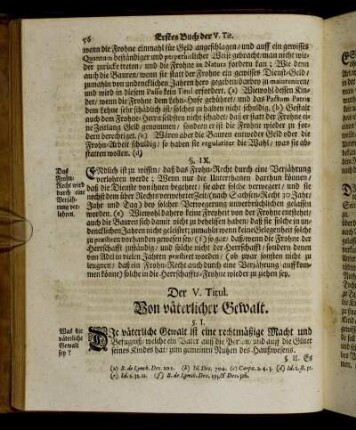 56 Erstes Buch der V. Tit.
wenn die Frohne einmahl für Geld angeschlagen / und auff ein gewisses
Quantum beständiger und perpetuirlicher Weise gebracht / man nicht wie-
der zurücke treten / und die Frohne in Natura fordern kan ; Wie denn
auch die Bauren / wenn sie statt der Frohne ein gewisses Dienst-Geld /
zumahln von undencklichen Jahren hero gegeben / darbey zu
und wird in diesem Passu kein Titul erfordert. (z) Wiewohl dessen Kin-
der / wenn die Frohne dem Lehn-Hofe gebühret / und das Pactum Patris
dem Lehne sehr schädlich ist / solches zu halten nicht schuldig. (b) Gestalt
auch dem Frohne-Herrn selbsten nicht schadet / daß er statt der Frohne ei-
ne Zeitlang Geld genommen / sondern er ist die Frohne wieder zu for-
dern berechtiget. (c) Wären aber die Bauren entweder Geld oder die
Frohn-Arbeit schuldig ; so haben sie regulariter die Wahl / was sie ab-
statten wollen. (d)
§. IX.
Das Frohn-Recht wird durch eine Verjäh-rung ver-lohren.
ENdlich ist zu wissen / daß das Frohn-Recht durch eine Verjährung
verlohren werde ; Wenn nur die Unterthanen darthun können /
daß die Dienste von ihnen begehret / sie aber solche verwegert / und sie
nachst dem über Rechts verwehrter Zeit (nach Sachsen-Recht 30 Jahr /
Jahr und Tag) bey solcher Verwegerung unverbrüchlich gelassen
worden. (e) Wiewohl daferne keine Freyheit von der Frohne entstehet /
auch die Bauren sich damit nicht zu behelffen haben / daß sie solche in un-
dencklichen Jahren nicht geleistet / zumahln wenn keine Gelegenheit solche
zu vorhanden gewesen / sey (f) So gar / daß / wo die Frohne der
Herrschafft beständig / und solche nicht der Herrschafft / sondern denen
von Adel in vielen Jahren worden / (ob zwar sonsten nicht zu
leugnen / daß ein Frohn-Recht auch durch eine Verjährung auffkom-
men könne) solche in die Herrschaffts-Frohne wieder zu ziehen sey.
Der V. Titul.
Von väterlicher Gewalt.
§. I.
Was die väterliche Gewalt sey?
DIe väterliche Gewalt ist eine rechtmäßige Macht und
Befugniß / welche ein Vater auff die Person / und auff die Güter
seines Kindes hat / zum gemeinen Nutzen des Hauswesens.
§. II. Es